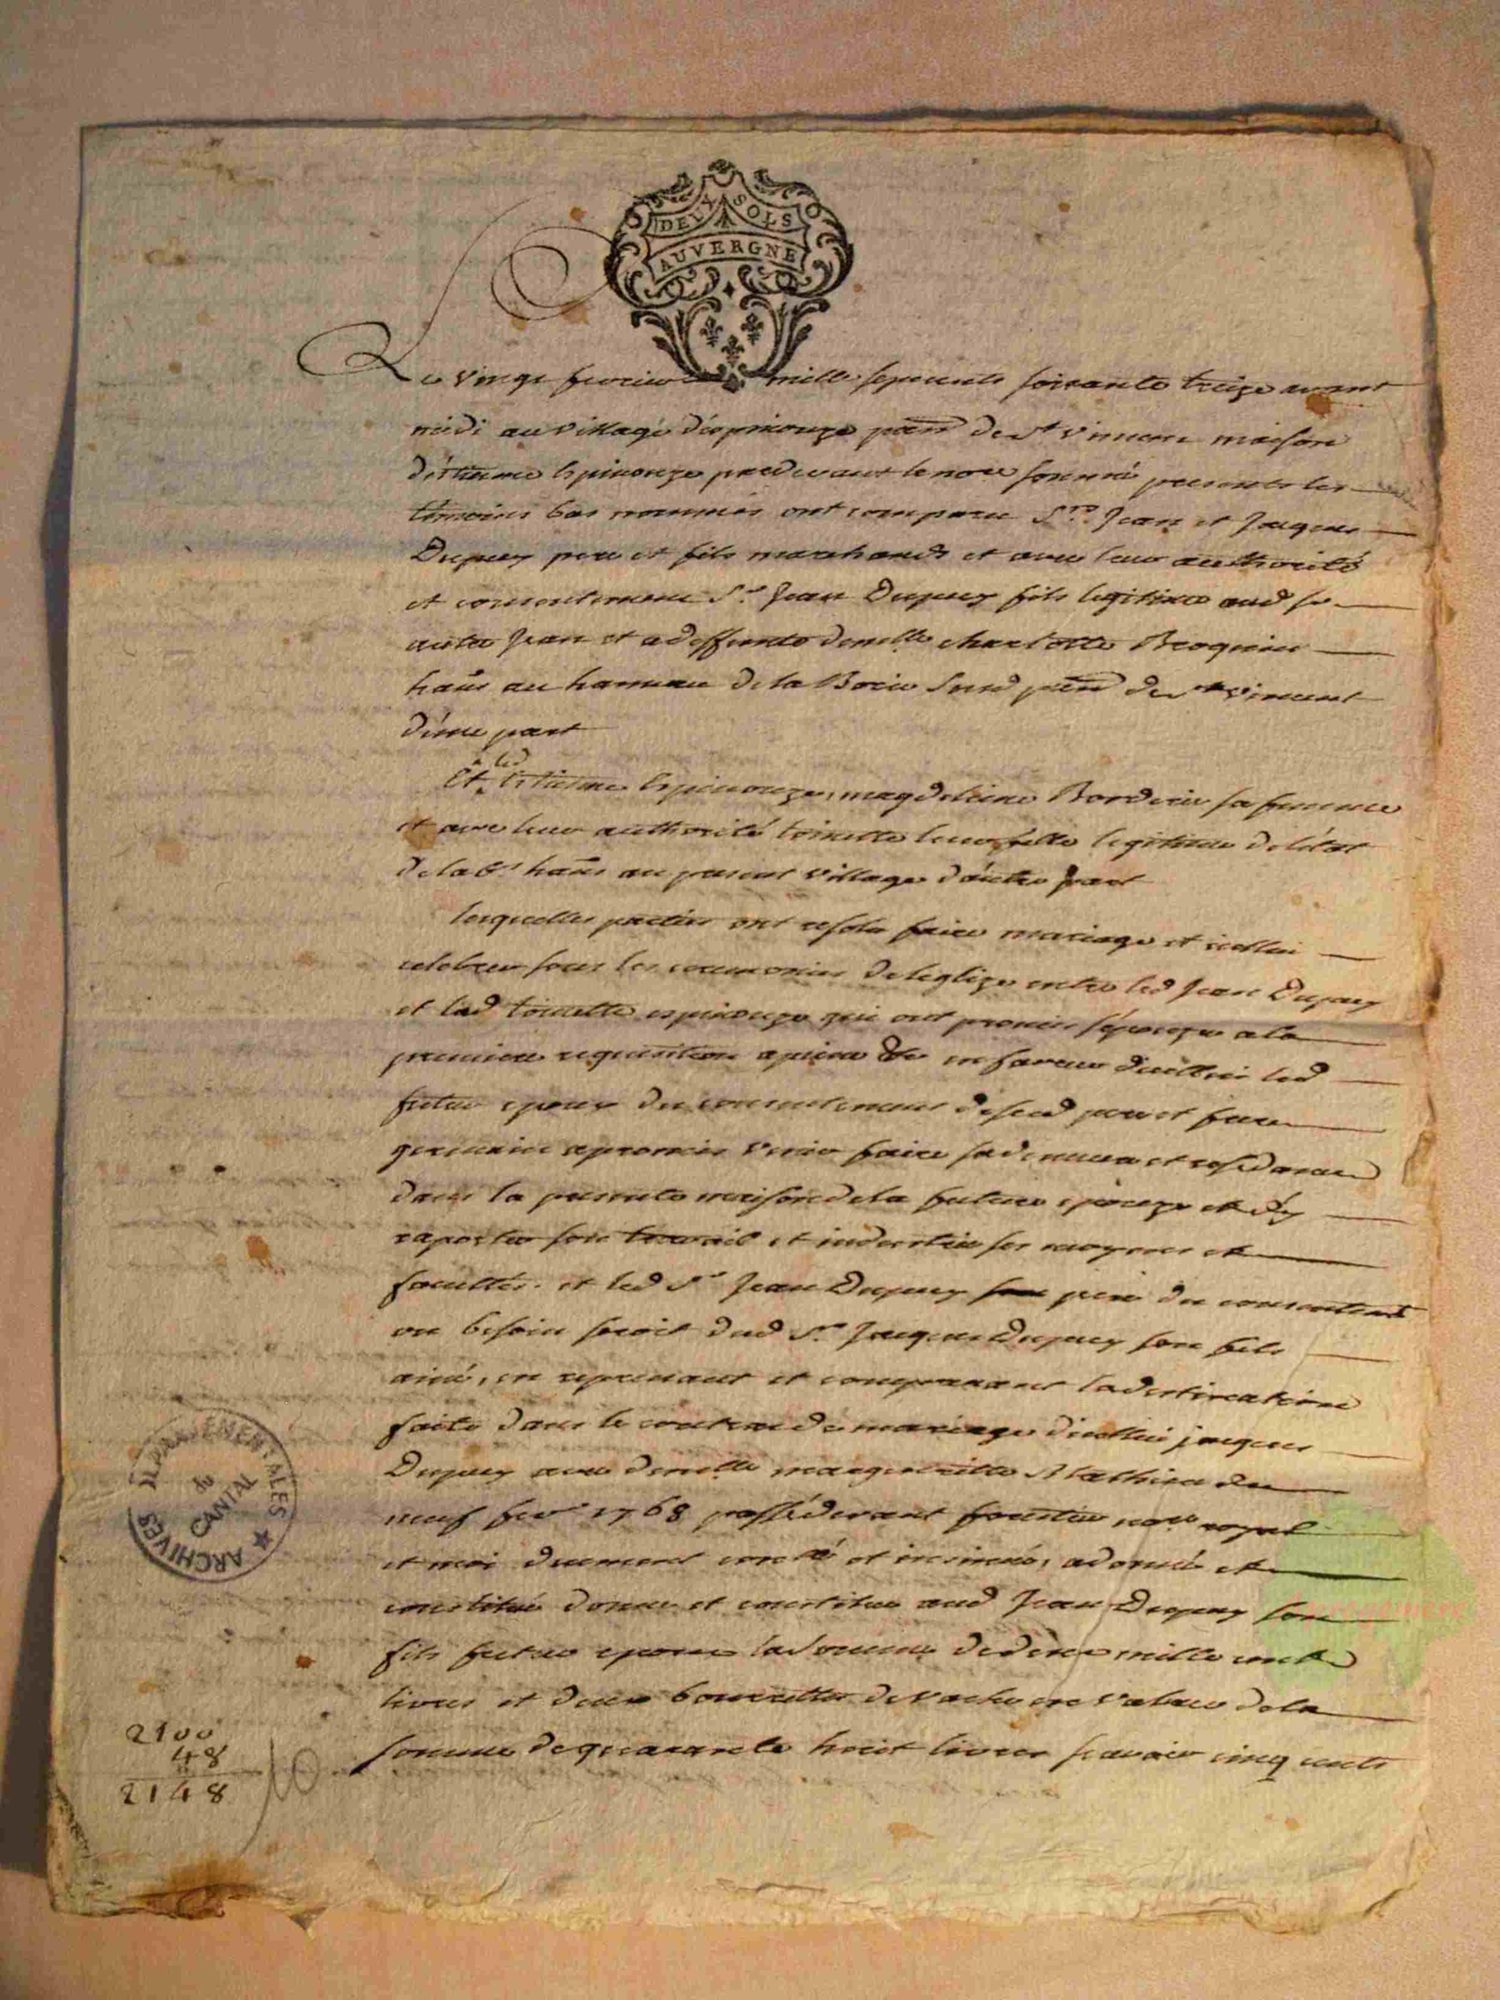 DEUX SOLS
AUVERGNE
Le vingt fevrier mille sept cents soixante treize avant
midi au village d'espinouze parr de St vincent maison
d'étienne Espinouze pardevant le nore soussné presents les
témoins bas nommés ont comparu Srs Jean et Jacques
Dupuy pere et fils marchands et avec leur authorité
et consentement Sr Jean Dupuy fils legitime aud Sr
autre Jean et a deffunte demlle charlotte Broquin
hañs au hameau de la Borie parr de St vincent
d'une part
Et led étienne Espinouze, magdeleine Borderie sa femme
et avec leur authorité toinette leur fille legitime
hañs au present village d'autre part
lesquelles parties ont resolu faire mariage et icellui
celebrer sous les ceremonies de leglize entre led Jean Dupuy
et lad toinette espinouze qui ont promis s'épouzer a la
premiere requisition a peine en faveur dicellui led
futur epoux du consentement desed pere et frere
germain a promis venir faire sa demeure et residance
dans la presente maison de la future epouze et d'y
raporter son travail et industrie ses moyens et
facultés. et led Sr Jean Dupuy pere du consentemt
ou besoin seroit dud Sr Jacques Dupuy son fils
ainé, en reprenant et comprenant la destination
faite dans le contrat de mariage dicellui jacques
Dupuy avec demlle margueritte Mathieu du
neuf fevr 1768 passé devant nore royal
et moi duement conllé et insinué, a donné et
constitué donne et constitue aud Jean Dupuy son
fils futur epoux la somme de deux mille cent
livres et deux bourrettes de vache en valeur de la
somme de quarante huit livres scavoir cinq cents
2100
48
2148
ARCHIVES DÉPARTEMENTALES
du
CANTAL